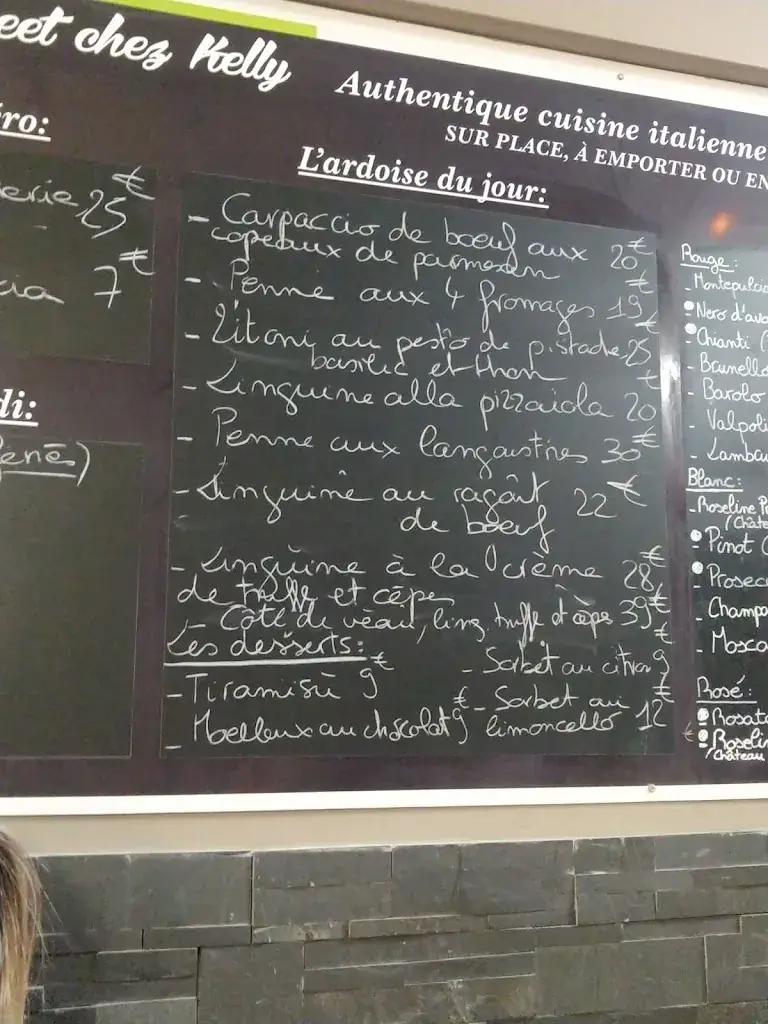 eet chez Kelly
Authentique cuisine italienne
SUR PLACE, À EMPORTER OU EN
ro:
erie 25 €
cia 7 €
di:
ené)
L'ardoise du jour:
- Carpaccio de bœuf aux
copeaux de parmesan 20 €
- Penne aux 4 fromages 19 €
- Zitoni au pesto de pistache 25 €
basilic et thon
- Linguine alla pizzaiola 20 €
- Penne aux langoustines 30 €
- Linguine au ragoût 22 €
de bœuf
- Linguine à la crème 28 €
de truffe et cèpe
- Côte de veau, ling, truffe et cèpe 39 €
Les desserts:
- Tiramisu 9 €
- Moelleux au chocolat 9 €
- Sorbet au citron 9 €
- Sorbet au
limoncello 12 €
Rouge:
- Montepulcia
- Nero d'avo
- Chianti (
- Brunello
- Barolo
- Valpoli
- Lambru
Blanc:
- Roseline P
(Châte
- Pinot (
- Prosec
- Champa
- Mosca
Rosé:
- Rosat
- Roselin
(Château